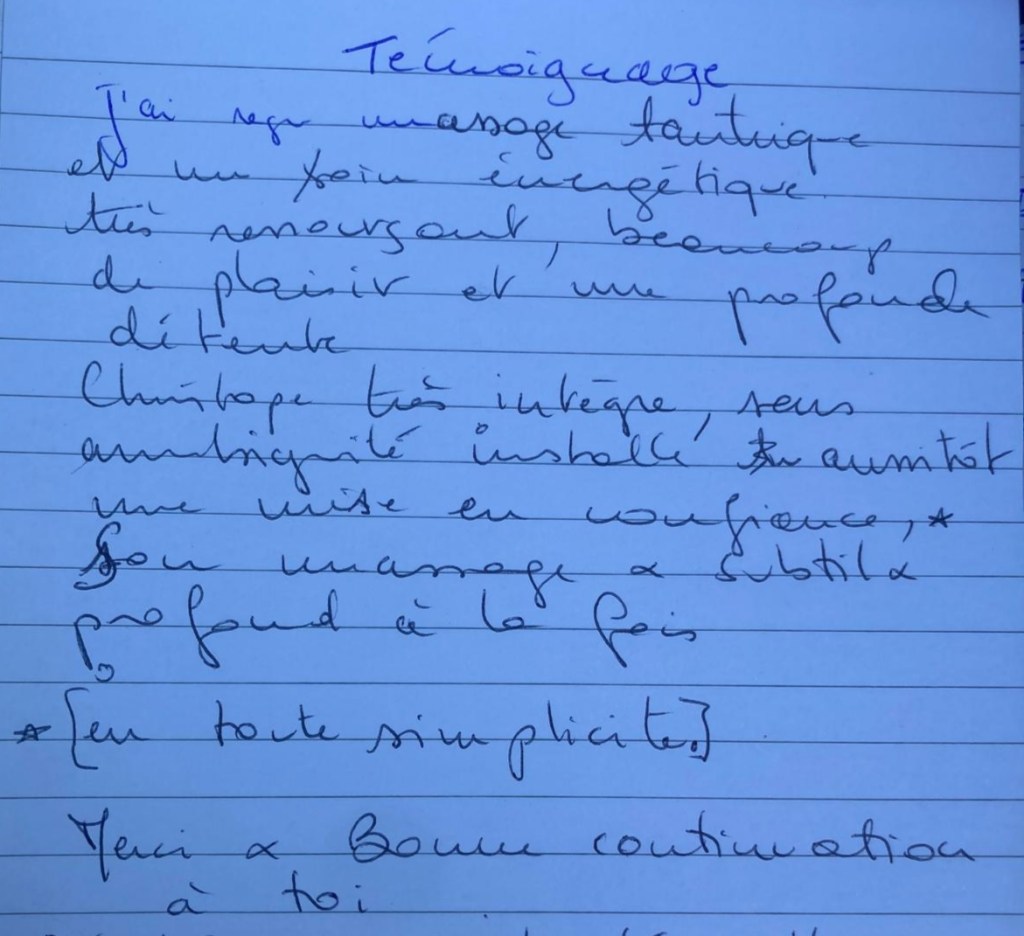 Témoignage
J'ai reçu un massage tantrique
et un soin énergétique
très ressourçant, beaucoup
de plaisir et une profonde
détente
Christope très intègre, sans
ambiguité installe aussitôt
une mise en confiance, *
Son massage & subtil &
profond à la fois
* [en toute simplicité.]
Merci & Bonne continuation
à toi